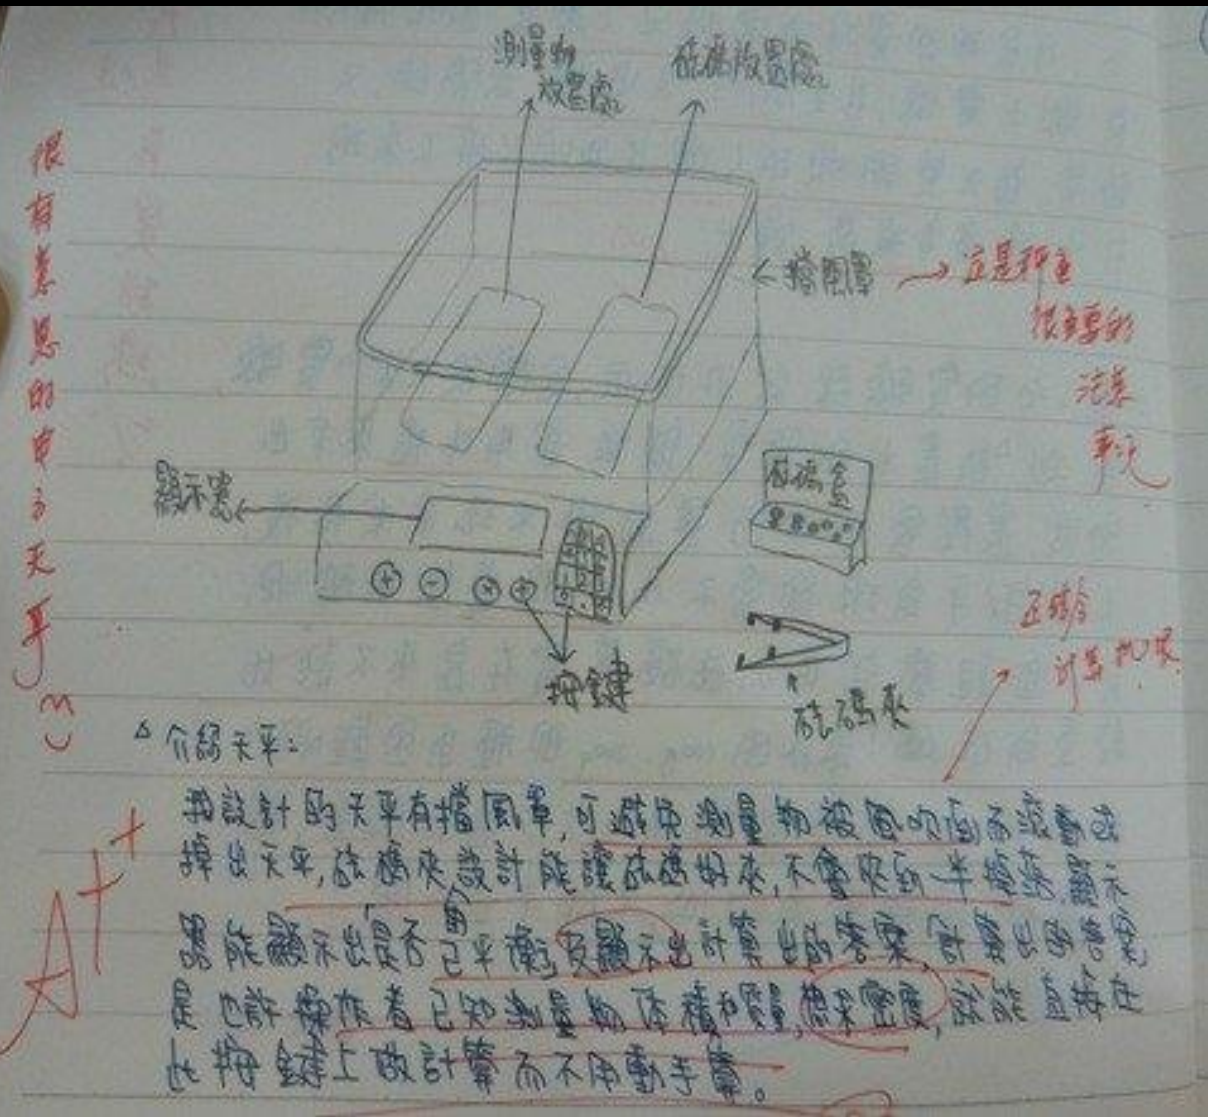 測量物
放置處
砝碼放置處
擋風罩
這是秤重
很重要的
注意
事項
很有意思的電子天平
顯示器
砝碼盒
按鍵
砝碼夾
正確
計算
介紹天平:
我設計的天平有擋風罩,可避免測量物被風吹而滾動或
掉出天平,砝碼夾設計能讓砝碼好夾,不會夾到一半掉落,顯示
器能顯示出是否已平衡,及顯示出計算出的答案,計算出的答案
是也許操作者已知測量物体積和質量,想求密度,就能直接在
此按鍵上做計算而不用動手算。
A++